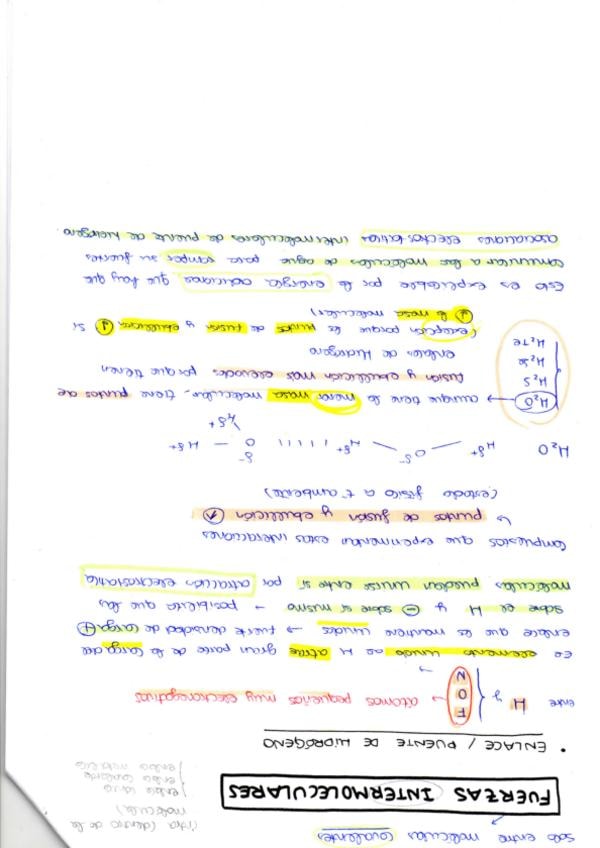 solo entre moléculas covalentes
FUERZAS INTERMOLECULARES
intra (dentro de la
molécula)
enlace iónico
enlace covalente
enlace metálico
• ENLACE / PUENTE DE HIDRÓGENO
entre H y { F O N → átomos pequeños muy electronegativos
El elemento unido al H atrae gran parte de la carga del
enlace que les mantiene unidos → fuerte densidad de carga +
sobre el H y - sobre si mismo → posibilita que las
moléculas puedan unirse entre sí por atracción electrostática
Compuestos que experimentan estas interacciones
↳ puntos de fusión y ebullición ↑
(estado físico a tª ambiente)
H₂O Hδ+ — Oδ- — Hδ+ ||||| δ- O — Hδ+
Hδ+
H₂O → aunque tiene la menor masa molecular, tiene puntos de
H₂S fusión y ebullición más elevados porque tienen
H₂Se enlaces de Hidrógeno
H₂Te (excepción porque los puntos de fusión y ebullición ↑ si
↑ la masa molecular)
Esto es explicable por la energía adicional que hay que
comunicar a las moléculas de agua para romper sus fuertes
asociaciones electrostáticas intermoleculares de puente de hidrógeno.